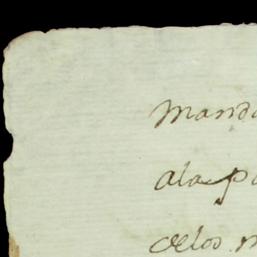 Mand
ala p
delos m